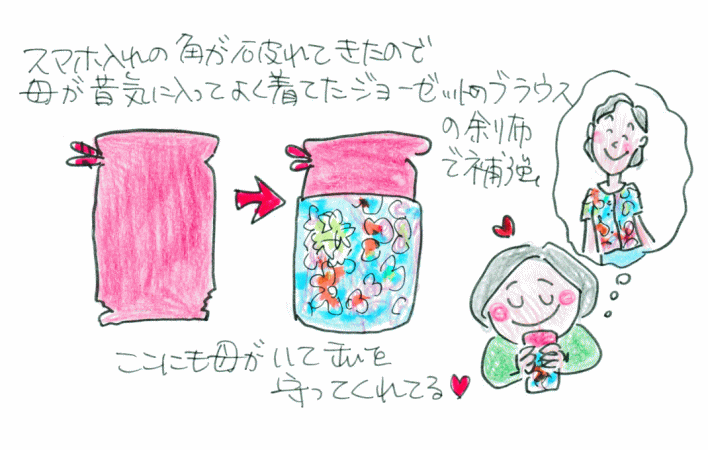 スマホ入れの角が破れてきたので
母が昔気に入ってよく着てたジョーゼットのブラウス
の余り布
で補強。
ここにも母がいて
守ってくれてる